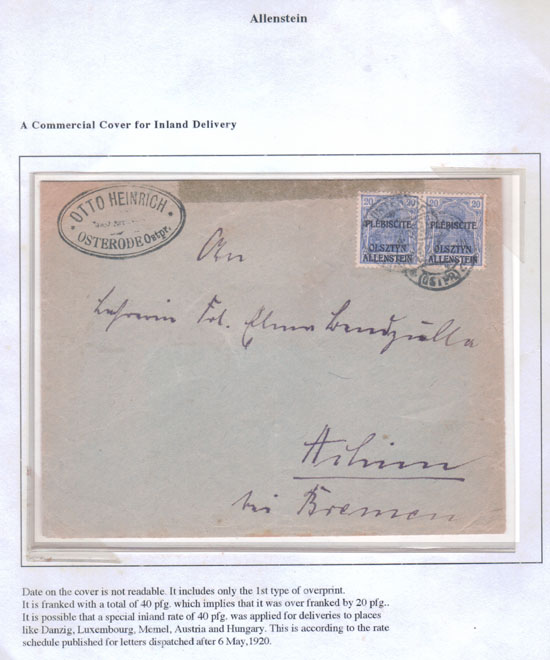 Allenstein
A Commercial Cover for Inland Delivery
OTTO HEINRICH
OSTERODE Ostpr.
20 20 20 20
PLÉBISCITE PLÉBISCITE
OLSZTYN OLSZTYN
ALLENSTEIN ALLENSTEIN
(OSTPR)
An
Lehrerin Frl. Elma
Achim
bei Bremen
Date on the cover is not readable. It includes only the 1st type of overprint.
It is franked with a total of 40 pfg. which implies that it was over franked by 20 pfg..
It is possible that a special inland rate of 40 pfg. was applied for deliveries to places
like Danzig, Luxembourg, Memel, Austria and Hungary. This is according to the rate
schedule published for letters dispatched after 6 May,1920.